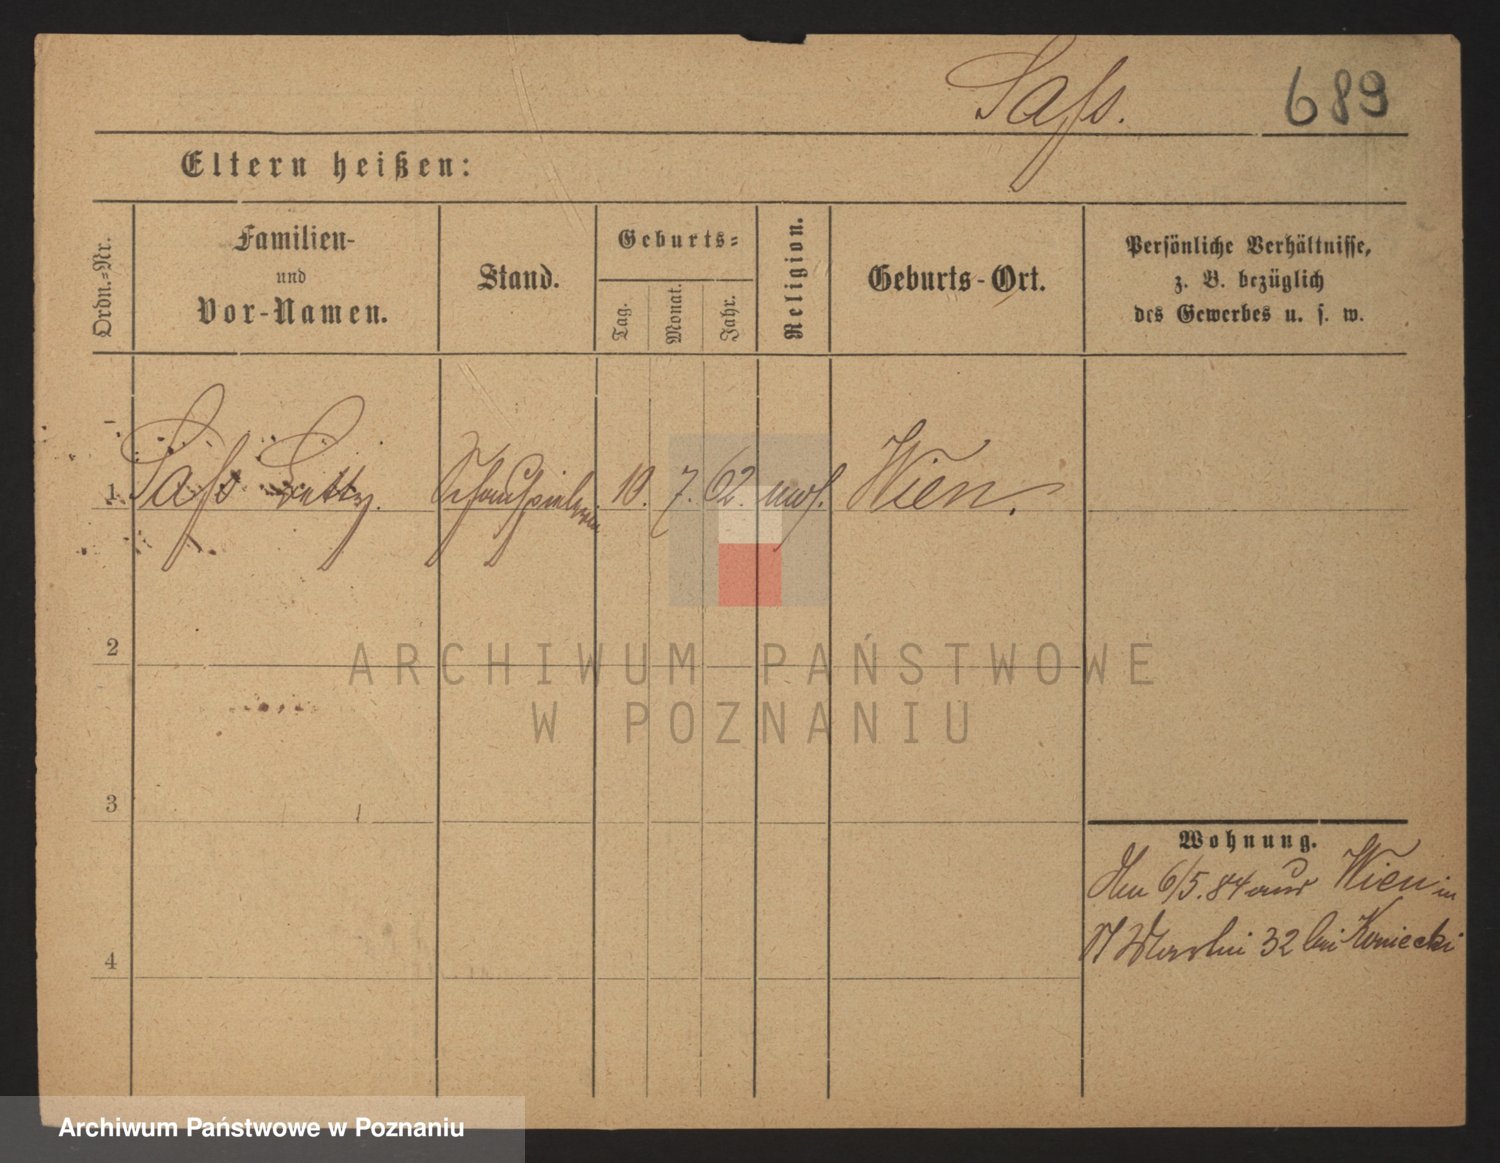 Saſs.
689
Eltern heißen:
Ordn.-Nr.
Familien-
und
Vor-Namen.
Stand.
Geburts-
Tag.
Monat.
Jahr.
Religion.
Geburts-Ort.
Persönliche Verhältnisse,
z. B. bezüglich
des Gewerbes u. s. w.
1 Saſs Betty. Schauspielerin 10. 7. 62. mos. Wien.
2
3
4
Wohnung.
6/5. 84 aus Wien in
32 bei Koniecki
ARCHIWUM PAŃSTWOWE
W POZNANIU
Archiwum Państwowe w Poznaniu